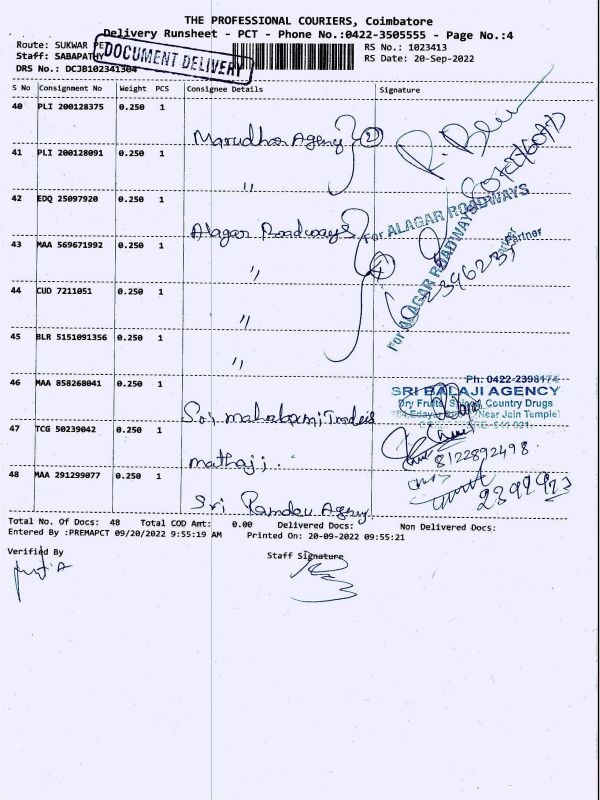 THE PROFESSIONAL COURIERS, Coimbatore
Delivery Runsheet - PCT - Phone No.:0422-3505555 - Page No.:4
Route: SUKWAR PE
RS No.: 1023413
Staff: SABAPATHY
RS Date: 20-Sep-2022
DRS No.: DCJB102341304
DOCUMENT DELIVERY
S No Consignment No Weight PCS Consignee Details Signature
40 PLI 200128375 0.250 1
Marudhar Agency 2
41 PLI 200128091 0.250 1
"
42 EDQ 25097920 0.250 1
Alagar Roadways 4
For ALAGAR ROADWAYS
Partner
For ALAGAR ROADWAYS
43 MAA 569671992 0.250 1
"
44 CUD 7211051 0.250 1
"
45 BLR 5151091356 0.250 1
"
46 MAA 858268041 0.250 1
Sri mahalaxmi Traders
Ph: 0422-2398174
SRI BALAJI AGENCY
Dry Fruits Country Drugs
(Near Jain Temple)
47 TCG 50239042 0.250 1
mathaji
8122892498
48 MAA 291299077 0.250 1
Sri Ramdev Agency
Total No. Of Docs: 48 Total COD Amt: 0.00 Delivered Docs: Non Delivered Docs:
Entered By :PREMAPCT 09/20/2022 9:55:19 AM Printed On: 20-09-2022 09:55:21
Verified By
Staff Signature